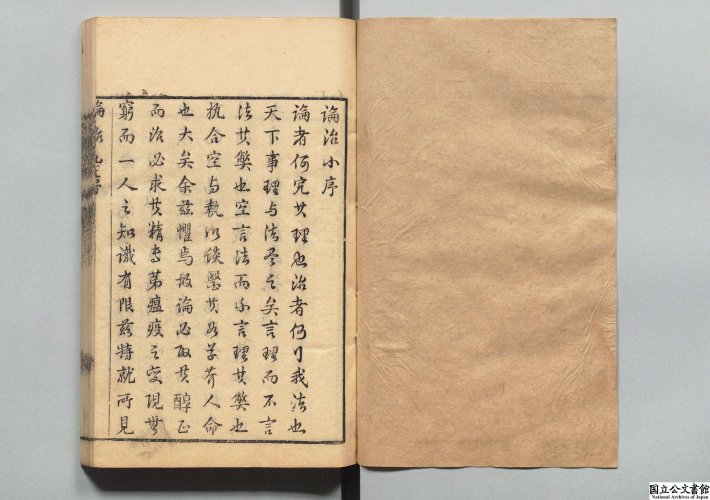 論治小序
論者何究其理也治者何行我法也
天下事理与法尽之矣言理而不言
法其弊也空言法而不言理其弊也
执合空与執以談醫其不草芥人命
也大矣余茲懼焉故論必取其醇正
而治必求其精當第瘟疫之变現無
窮而一人之知識有限茲特就所見
論治小序
国立公文書館
National Archives of Japan